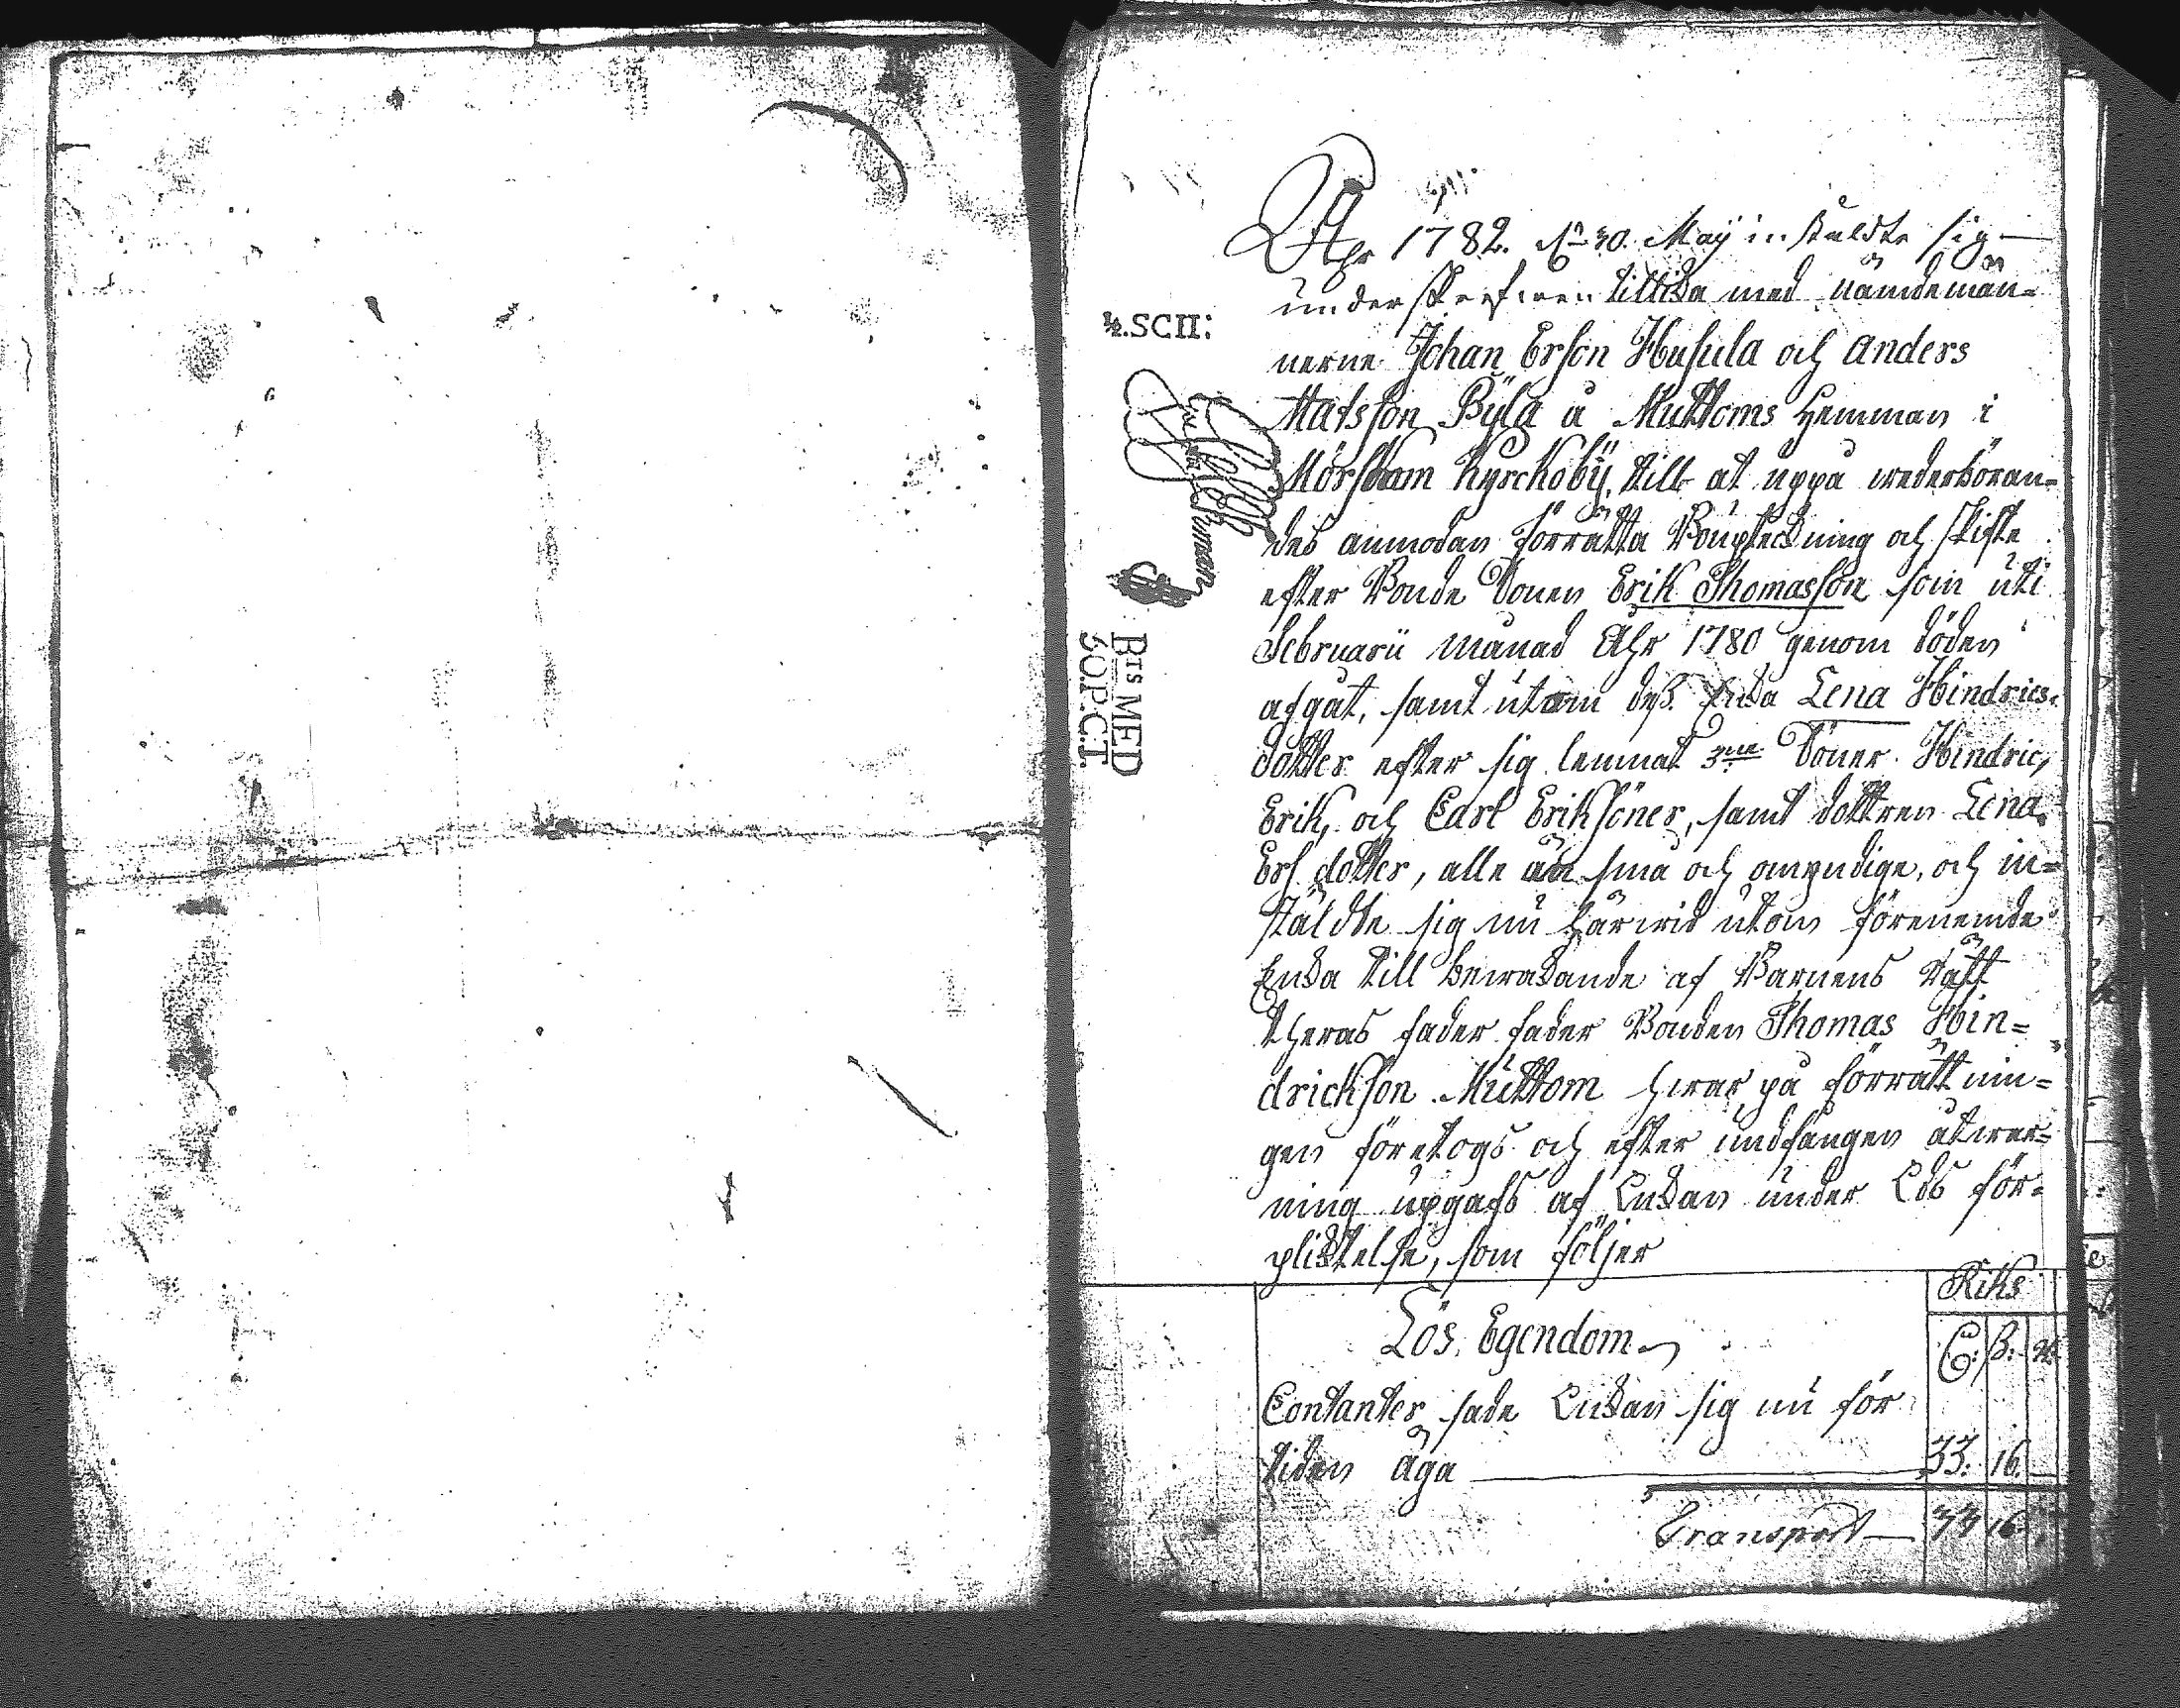 Åhr 1782. dn 30. Maÿ instäldte sig
underskrefwen tillika med nämdemän-
nerne Johan Erson Husula och Anders
Matsson Bÿla å Muttoms Hemman i
Mörskom Kyrckobÿ, till at uppå wederböran-
des anmodan förrätta Boupteckning och skifte
efter Bonde Sonen Erik Thomasson som uti
Februarii månad Åhr 1780 genom döden
afgåt, samt utom dess Enka Lena Hindrics-
dotter efter sig lemnat 3ne Söner Hindric,
Erik, och Carl Eriksöner, samt dottren Lena
Ers dotter, alle än små och omyndige, och in-
stäldte sig nu härwid utom förenemde
Enka till bewakande af Barnens Rätt
theras fader fader Bonden Thomas Hin-
drickson Muttom hwar på förrättnin-
gen företogs och efter undfången åtwar-
ning upgafs af Enkan under Eds för-
plictelse, som följer
½.SCII:
BTS MED
60.P.C.T.
Riks
Lös Egendom
ß:
Contanter sade Enkan sig nu för
tiden äga 33. 16.
Transport 33 16